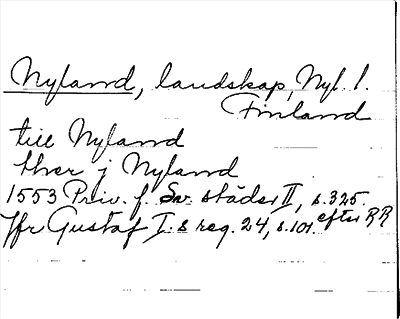 Nyland, landskap, Nyl. l.
Finland
till Nyland
ther j Nyland
1553 Priv. f. Sv. städer II, s. 325.
Jfr Gustaf I:s reg. 24, s. 101. efter RR